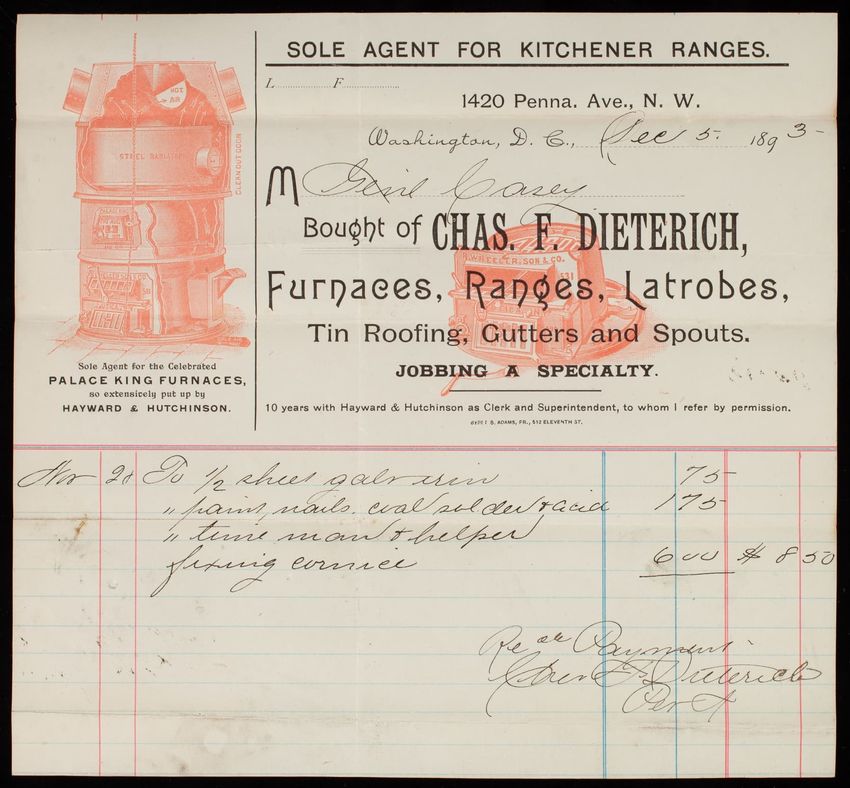 SOLE AGENT FOR KITCHENER RANGES.
L F
1420 Penna. Ave., N. W.
Washington, D. C., Dec 5. 1893-
M Genl Casey
Bought of CHAS. F. DIETERICH,
Furnaces, Ranges, Latrobes,
Tin Roofing, Gutters and Spouts.
JOBBING A SPECIALTY.
10 years with Hayward & Hutchinson as Clerk and Superintendent, to whom I refer by permission.
S. ADAMS, PR., 512 ELEVENTH ST.
HOT AIR
STEEL RADIATOR
CLEAN OUT DOOR
PALACE KING
WHEELER, SON & CO.
531
Sole Agent for the Celebrated
PALACE KING FURNACES,
so extensively put up by
HAYWARD & HUTCHINSON.
Nov 28 To 1/2 sheet galv iron 75
" paint, nails. coal solder & acid 175
" time man & helper
fixing cornice 600 $ 8 50
Payment
Chas F Dieterich
Per